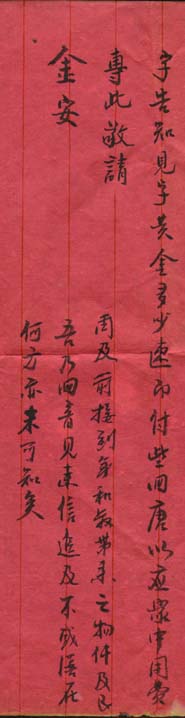 字告知見字黃金多少速即付些回唐以應家中用費
專此敬請
金安
周及前接到弟和叔帶來之物件及民
吾乃回音見來信追及不或落在
何方亦未可知矣